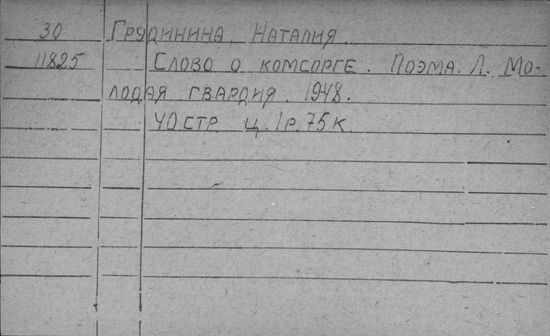 30 Грудинина, Наталия.
11825 Слово о комсорге. Поэма. Л. Мо-
лодая гвардия. 1948.
40 стр. ц. 1 р. 75 к.